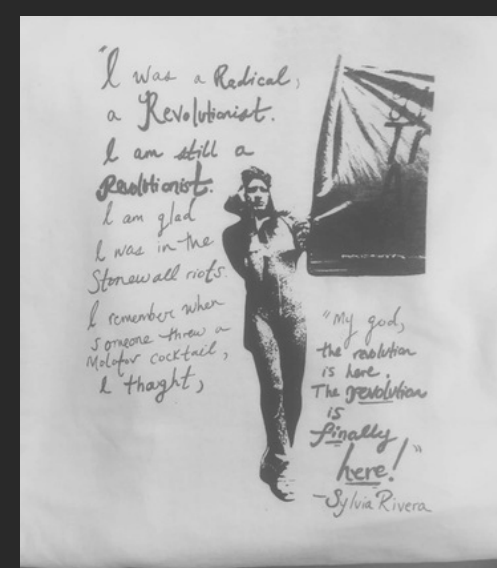 "I was a Radical,
a Revolutionist.
I am still a
Revolutionist.
I am glad
I was in the
Stonewall riots.
I remember when
someone threw a
Molotov cocktail,
I thought,
"My god,
the revolution
is here.
The revolution
is
finally
here!"
-Sylvia Rivera